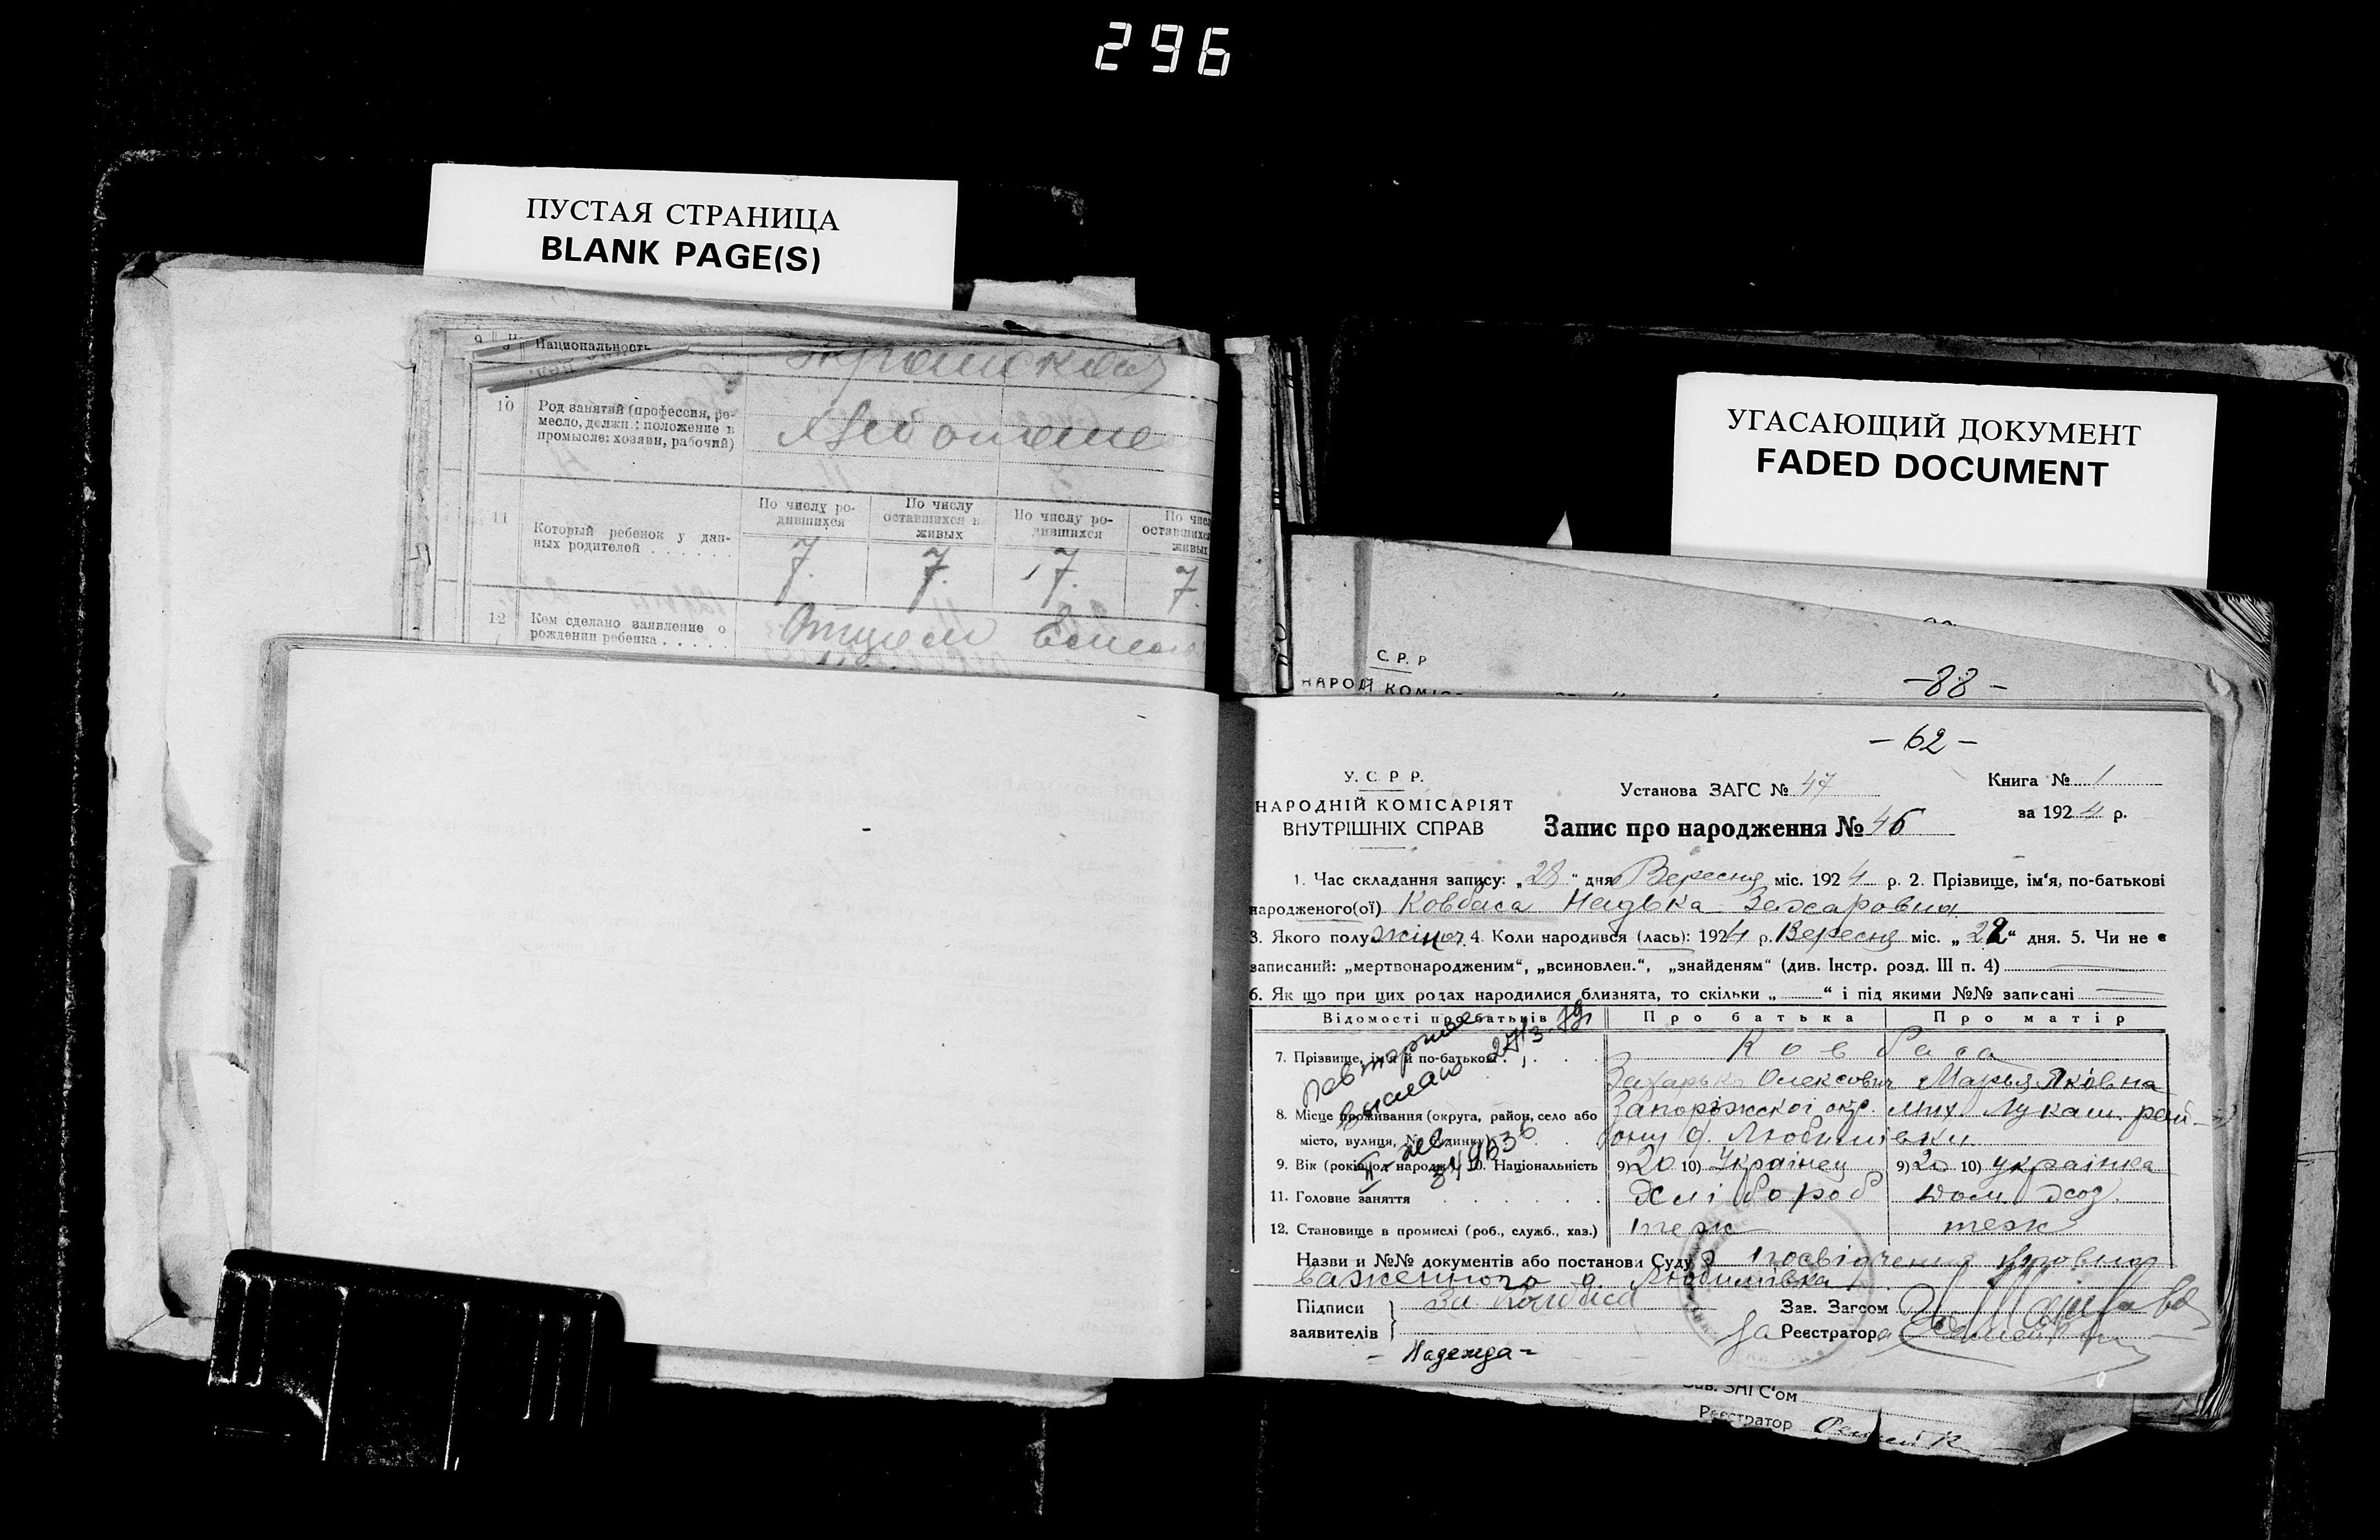 296
ПУСТАЯ СТРАНИЦА
BLANK PAGE(S)
УГАСАЮЩИЙ ДОКУМЕНТ
FADED DOCUMENT
9 Национальность
10 Род занятий (профессия, ре-
месло, должн.: положение в
промысле: хозяин, рабочий)
11 Который ребенок у дан-
ных родителей . . . . . .
По числу ро-
дившихся
По числу
оставшихся в
живых
По числу ро-
дившихся
По числ
оставшихся
живых
7. 7. 7. 7.
12 Кем сделано заявление о
рождении ребенка . . . . .
Отцом
С. Р. Р
НАРОД КОМІС
-88-
-62-
У. С. Р. Р.
НАРОДНІЙ КОМІСАРІЯТ
ВНУТРІШНІХ СПРАВ
Установа ЗАГС № 47
Запис про народження № 46
Книга № 1
за 1924 р.
1. Час складання запису: „28" дня Вересня міс. 1924 р. 2. Прізвище, ім'я, по-батькові
народженого(ої) Ковбаса Надька Захаровна
3. Якого полу жіноч. 4. Коли народився (лась): 1924 р. Вересня міс. „22" дня. 5. Чи не є
записаний: „мертвонародженим", „всиновлен.", „знайденям" (див. Інстр. розд. III п. 4)
6. Як що при цих родах народилися близнята, то скільки „ " і під якими №№ записані
Відомості про батьків Про батька Про матір
7. Прізвище, ім'я й по-батькові Ковбаса
Захарько Олексович Марья Яковна
8. Місце проживання (округа, район, село або Запоріжскої окр. Мих. Лукаш. рай-
місто, вулиця, № будинку) ону с. Любимівки
9. Вік (років од народж.) 10. Національність 9) 20 10) Українец 9) 20 10) українка
11. Головне заняття Хлібороб дом. хоз.
12. Становище в промислі (роб., служб., хаз.) теж теж
Повторное
выслано 27/3-79
349636
Назви и №№ документів або постанови Суду посвідчення упovno
важенного с. Любимівка
Підписи
заявителів
За
Зав. Загсом
За Реєстратора
- Надежда -
Зав. ЗАГС'ом
Реєстратор